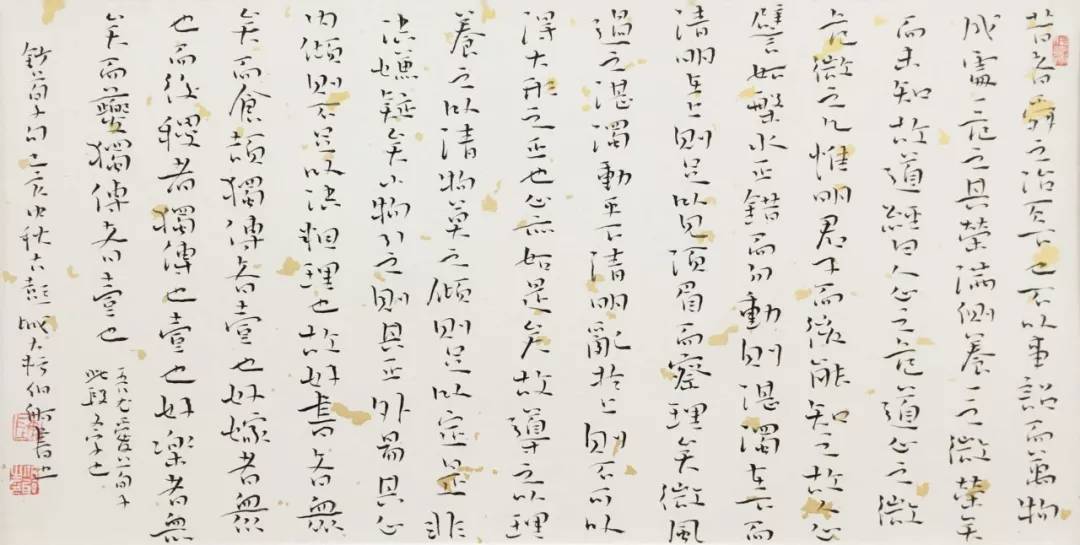 昔者舜之治天下也不以事詔而萬物
成處一危之其榮滿側養一之微榮矣
而未知故道經曰人心之危道心之微
危微之幾惟明君子而後能知之故人心
譬如槃水正錯而勿動則湛濁在下而
清明在上則足以見須眉而察理矣微風
過之湛濁動乎下清明亂於上則不可以
得大形之正也心亦如是矣故導之以理
養之以清物莫之傾則足以定是非
決嫌疑矣小物引之則其正外易其心
內傾則不足以決粗理也故好書者衆
矣而倉頡獨傳者壹也好稼者衆
也而後稷者獨傳也壹也好樂者衆
矣而夔獨傳者壹也
愛荀子
此段文字也
荀子句己亥中秋古彭城大伯舟書也